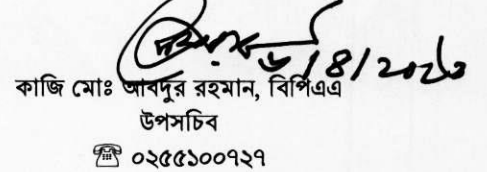 কাজি মোঃ আবদুর রহমান, বিপিএএ
উপসচিব
☎ ০২৫৫১০০৭২৭